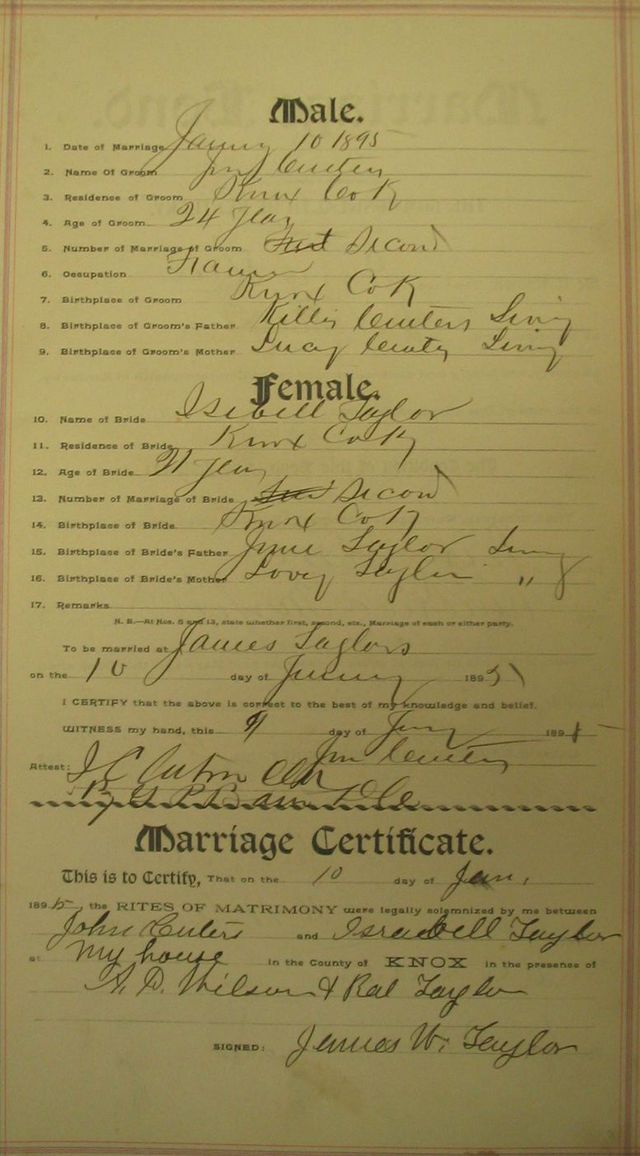 Male.
1. Date of Marriage January 10 1895
2. Name Of Groom Jno
3. Residence of Groom Knox Co Ky
4. Age of Groom 24 Years
5. Number of Marriage of Groom First Second
6. Occupation Farmer
7. Birthplace of Groom Knox Co Ky
8. Birthplace of Groom's Father Living
9. Birthplace of Groom's Mother Lucy Living
Female.
10. Name of Bride Isebell Taylor
11. Residence of Bride Knox Co Ky
12. Age of Bride 21 Years
13. Number of Marriage of Bride First Second
14. Birthplace of Bride Knox Co Ky
15. Birthplace of Bride's Father Taylor Living
16. Birthplace of Bride's Mother Taylor "
17. Remarks
N. B.—At Nos. 5 and 13, state whether first, second, etc., Marriage of each or either party.
To be married at James Taylors
on the 10 day of January 1895
I CERTIFY that the above is correct to the best of my knowledge and belief.
WITNESS my hand, this 9 day of Jany 1895
Jno
Attest:
Marriage Certificate.
This is to Certify, That on the 10 day of Jan,
1895, the RITES OF MATRIMONY were legally solemnized by me between
John and Israbell Taylor
at My house in the County of KNOX in the presence of
Wilson & Taylor
SIGNED: James W. Taylor